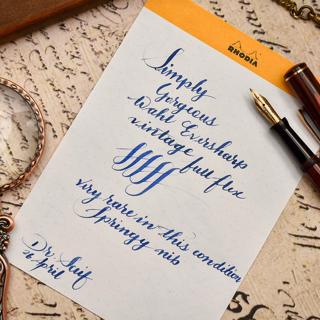 RHODIA
Simply
Gorgeous
Wahl Eversharp
vintage full flex
very rare in this condition
Springy nib
Dr Saif